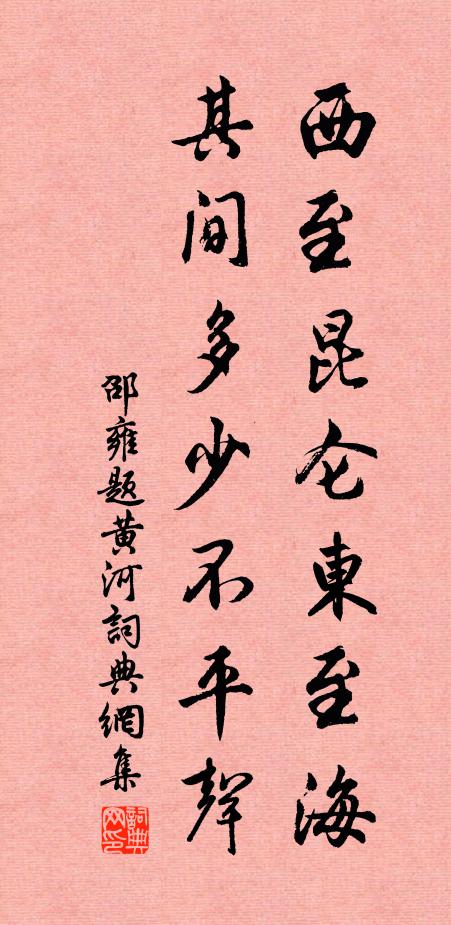 西至昆仑東至海
其间多少不平聲
邵雍题黄河詞典網集
詞典网印